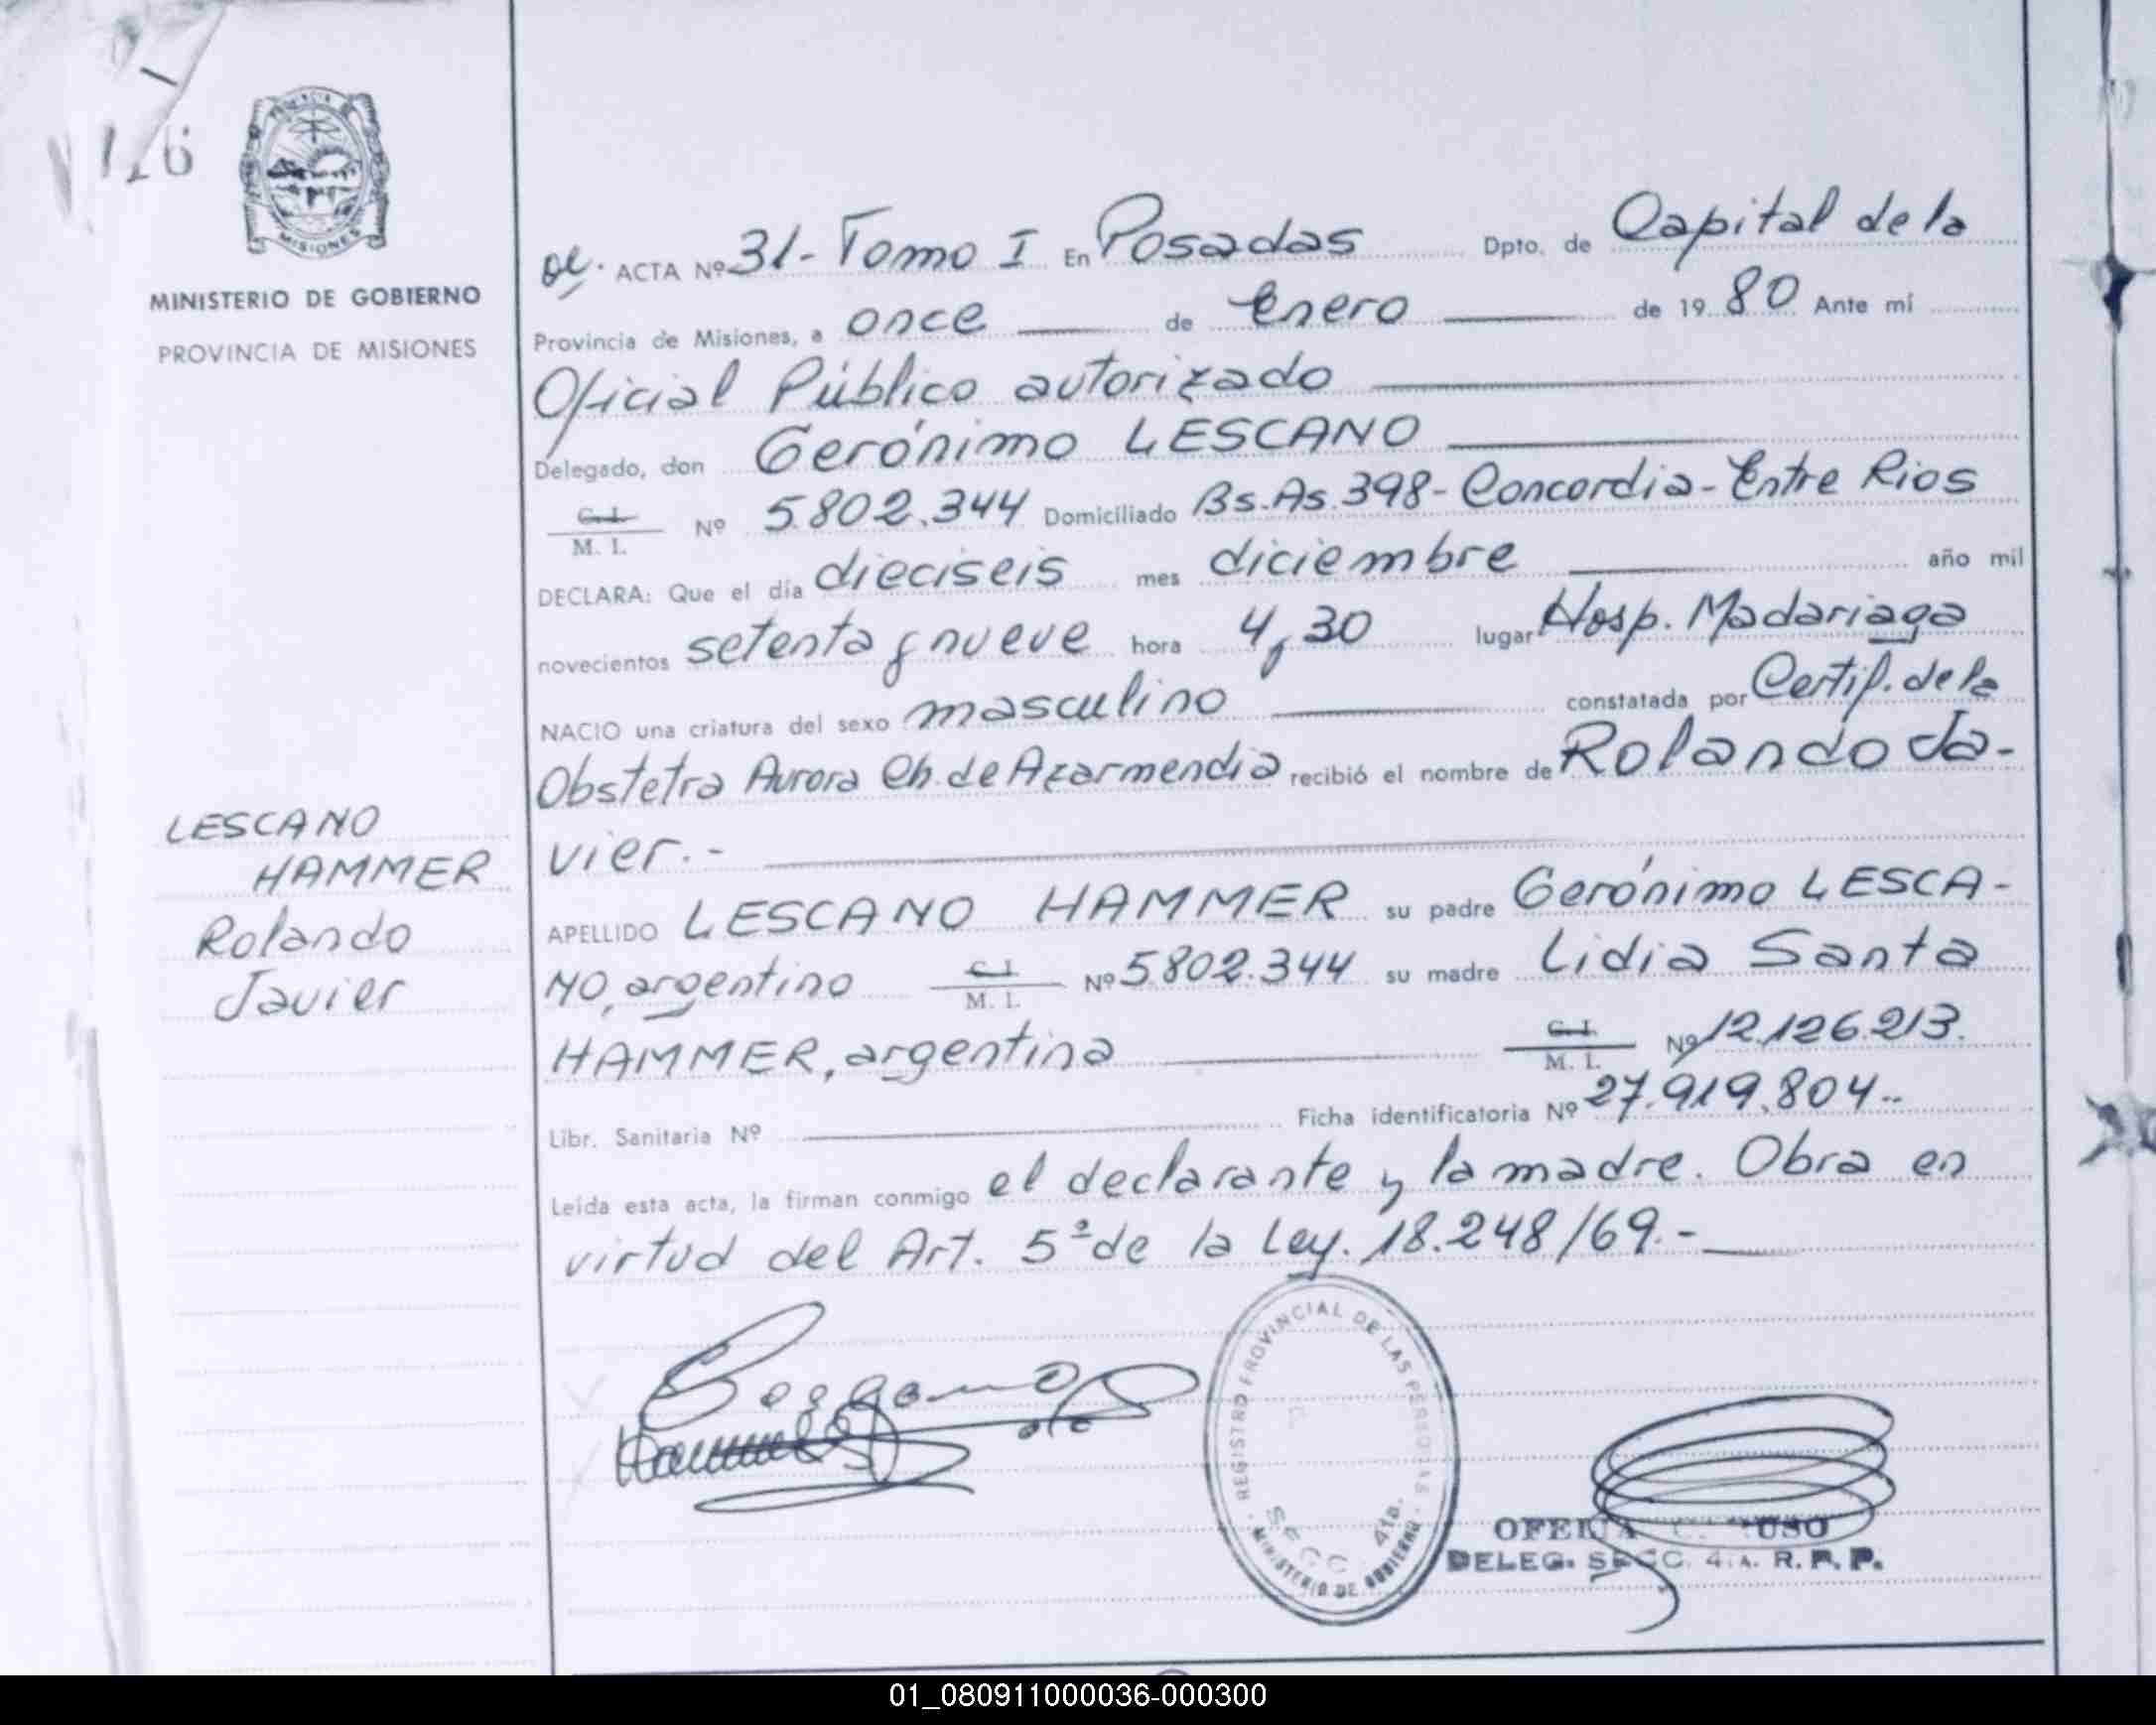 116
PROVINCIA DE
MISIONES
MINISTERIO DE GOBIERNO
PROVINCIA DE MISIONES
ACTA Nº 31- Tomo I En Posadas Dpto. de Capital de la
Provincia de Misiones, a once de Enero de 19 80 Ante mí
Oficial Público autorizado
Delegado, don Gerónimo LESCANO
C. I.
M. I. Nº 5802.344 Domiciliado Bs.As.398-Concordia-Entre Rios
DECLARA: Que el día dieciseis mes diciembre año mil
novecientos setenta y nueve hora 4,30 lugar Hosp. Madariaga
NACIO una criatura del sexo masculino constatada por Certif. de la
Obstetra Aurora Ch. de Azarmendia recibió el nombre de Rolando Ja-
vier.-
LESCANO
HAMMER
Rolando
Javier
APELLIDO LESCANO HAMMER su padre Gerónimo LESCA-
NO, argentino C. I. M. I. Nº 5.802.344 su madre Lidia Santa
HAMMER, argentina C. I. M. I. Nº 12.126.213.
Libr. Sanitaria Nº Ficha identificatoria Nº 27.919.804..
Leída esta acta, la firman conmigo el declarante y la madre. Obra en
virtud del Art. 5º de la Ley. 18.248/69.-
REGISTRO PROVINCIAL DE LAS PERSONAS
SECC. 41a.
MINISTERIO DE GOBIERNO
DELEG. SECC. 4.A. R. P. P.
01_080911000036-000300